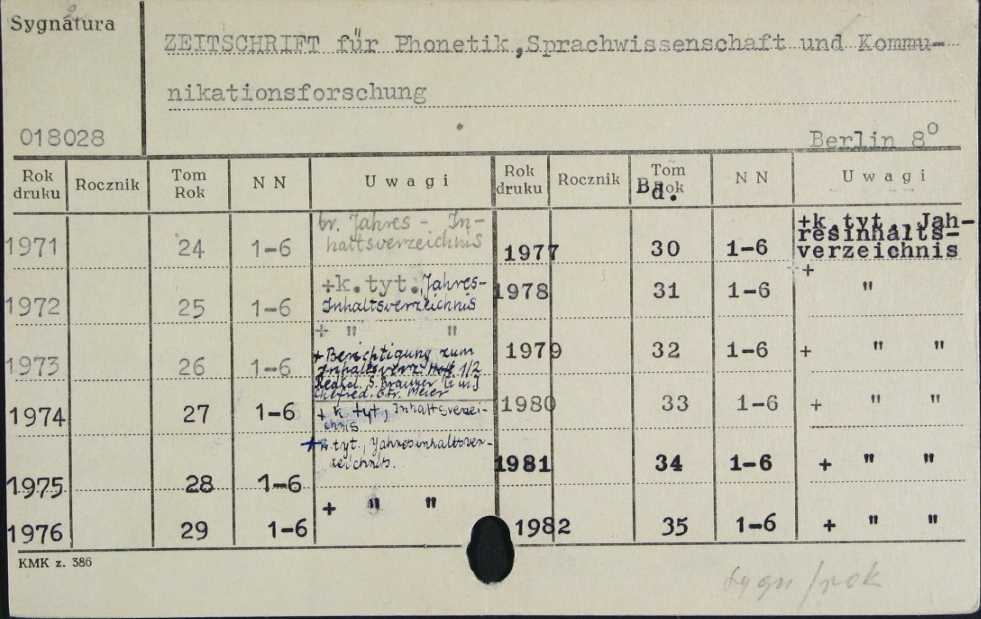 Sygnatura
ZEITSCHRIFT für Phonetik, Sprachwissenschaft und Kommu-
nikationsforschung
018028
Berlin 8°
Rok druku Rocznik Tom Rok N N Uwagi Rok druku Rocznik Tom Rok Bd. N N Uwagi
1971 24 1-6 br. Jahres - In-
haltsverzeichnis
1977 30 1-6 +k.tyt. Jah-
resinhalts-
verzeichnis
1972 25 1-6 +k.tyt., Jahres-
Inhaltsverzeichnis
1978 31 1-6 + "
+ " "
1973 26 1-6 + Berichtigung zum
Inhaltsverz. Heft 1/2
1979 32 1-6 + " "
1974 27 1-6 + k tyt, Inhaltsverzei-
chnis
1980 33 1-6 + " "
+k.tyt., Jahresinhaltsver-
zeichnis.
1981 34 1-6 + " "
1975 28 1-6
1976 29 1-6 + " "
1982 35 1-6 + " "
KMK z. 386
sygn/rok